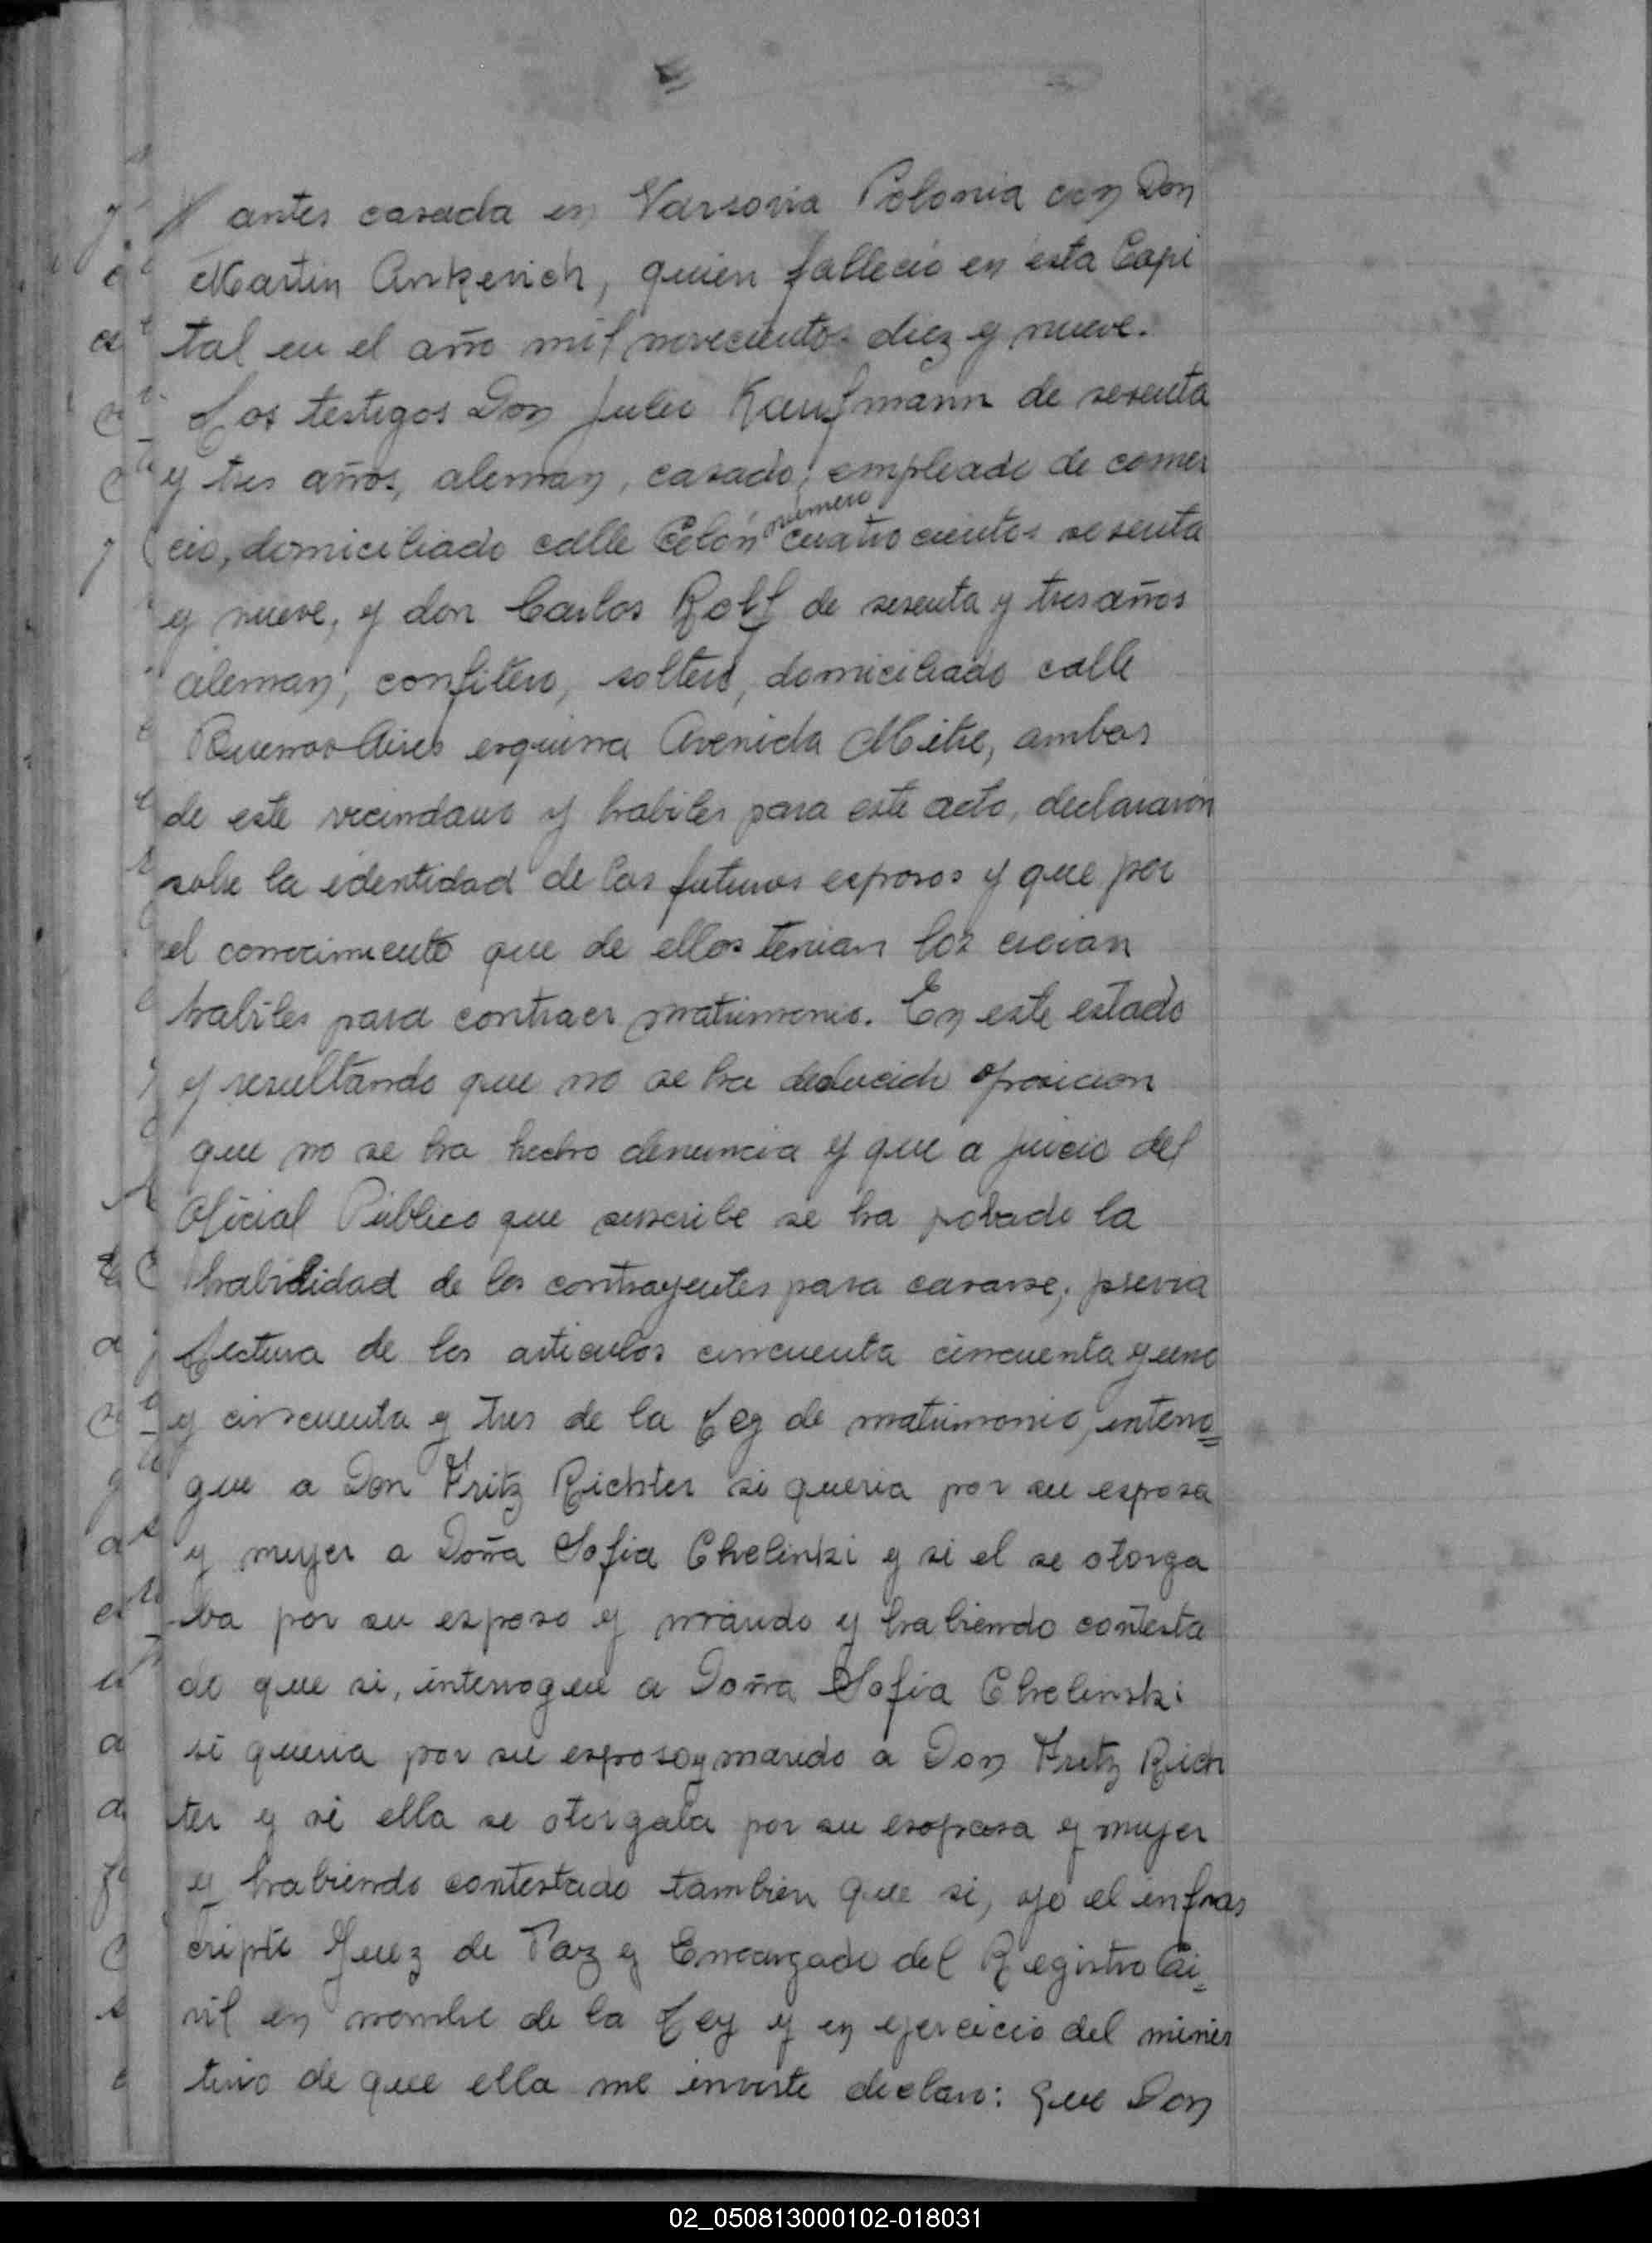 antes casada en Varsovia Polonia con Don
Martin Ankerich, quien fallecio en esta Capi
tal en el año mil novecientos diez y nueve.
Los testigos Don Julio Kaufmann de sesenta
y tres años, aleman, casado, empleado de comer
numero
cio, domiciliado calle Colón cuatrocientos sesenta
y nueve, y don Carlos Rolf de sesenta y tres años
aleman, confitero, soltero, domiciliado calle
Buenos Aires esquina Avenida Mitre, ambos
de este vecindario y habiles para este acto, declararon
sobre la identidad de los futuros esposos y que por
el conocimiento que de ellos tenian los creian
habiles para contraer matrimonio. En este estado
y resultando que no se ha deducido oposicion
que no se ha hecho denuncia y que a juicio del
Oficial Público que suscribe se ha probado la
habilidad de los contrayentes para casarse, previa
lectura de los articulos cincuenta cincuenta y uno
y cincuenta y tres de la Ley de matrimonio, interro=
gue a Don Fritz Richter si queria por su esposa
y mujer a Doña Sofia Chelinki y si el se otorga
ba por su esposo y marido y habiendo contesta
do que si, interrogue a Doña Sofia Chelinski
si queria por su esposo y marido a Don Fritz Rich
ter y si ella se otorgaba por su esoposa y mujer
y habiendo contestado tambien que si, yo el infras
cripto Juez de Paz y Encargado del Registro Ci=
vil en nombre de la Ley y en ejercicio del minis
terio de que ella me inviste declaro: Que Don
02_050813000102-018031